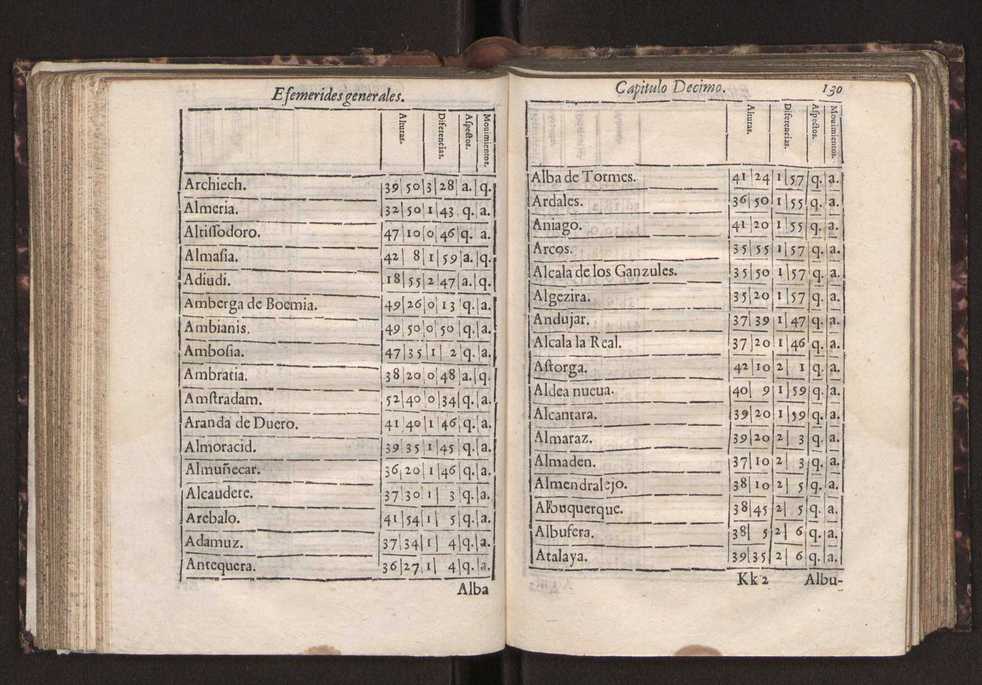 Efemerides generales.
Alturas. Diferencias. Aspectos. Mouimientos.
Archiech. 39 50 3 28 a. q.
Almeria. 32 50 1 43 q. a.
Altissodoro. 47 10 0 46 q. a.
Almasia. 42 8 1 59 a. q.
Adiudi. 18 55 2 47 a. q.
Amberga de Boemia. 49 26 0 13 q. a.
Ambianis. 49 50 0 50 q. a.
Ambosia. 47 35 1 2 q. a.
Ambratia. 38 20 0 48 a. q.
Amstradam. 52 40 0 34 q. a.
Aranda de Duero. 41 40 1 46 q. a.
Almoracid. 39 35 1 45 q. a.
Almuñecar. 36 20 1 46 q. a.
Alcaudete. 37 30 1 3 q. a.
Arebalo. 41 54 1 5 q. a.
Adamuz. 37 34 1 4 q. a.
Antequera. 36 27 1 4 q. a.
Alba
Capitulo Decimo. 130
Alturas. Diferencias. Aspectos. Mouimientos.
Alba de Tormes. 41 24 1 57 q. a.
Ardales. 36 50 1 55 q. a.
Aniago. 41 20 1 55 q. a.
Arcos. 35 55 1 57 q. a.
Alcala de los Ganzules. 35 50 1 57 q. a.
Algezira. 35 20 1 57 q. a.
Andujar. 37 39 1 47 q. a.
Alcala la Real. 37 20 1 46 q. a.
Astorga. 42 10 2 1 q. a.
Aldea nueua. 40 9 1 59 q. a.
Alcantara. 39 20 1 59 q. a.
Almaraz. 39 20 2 3 q. a.
Almaden. 37 10 2 3 q. a.
Almendralejo. 38 10 2 5 q. a.
Albuquerque. 38 45 2 5 q. a.
Albufera. 38 5 2 6 q. a.
Atalaya. 39 35 2 6 q. a.
Kk 2 Albu-